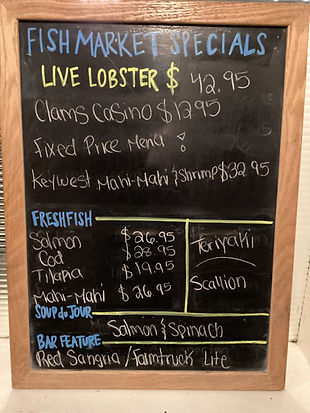 FISH MARKET SPECIALS
LIVE LOBSTER $ 42.95
Clams Casino $12.95
Fixed Price Menu :
Keywest Mahi-Mahi & Shrimp $32.95
FRESH FISH
Salmon $26.95
Cod $28.95
Tilapia $19.95
Mahi-Mahi $26.95
Teriyaki
Scallion
SOUP du JOUR
Salmon & Spinach
BAR FEATURE
Red Sangria / Farmtruck Lite